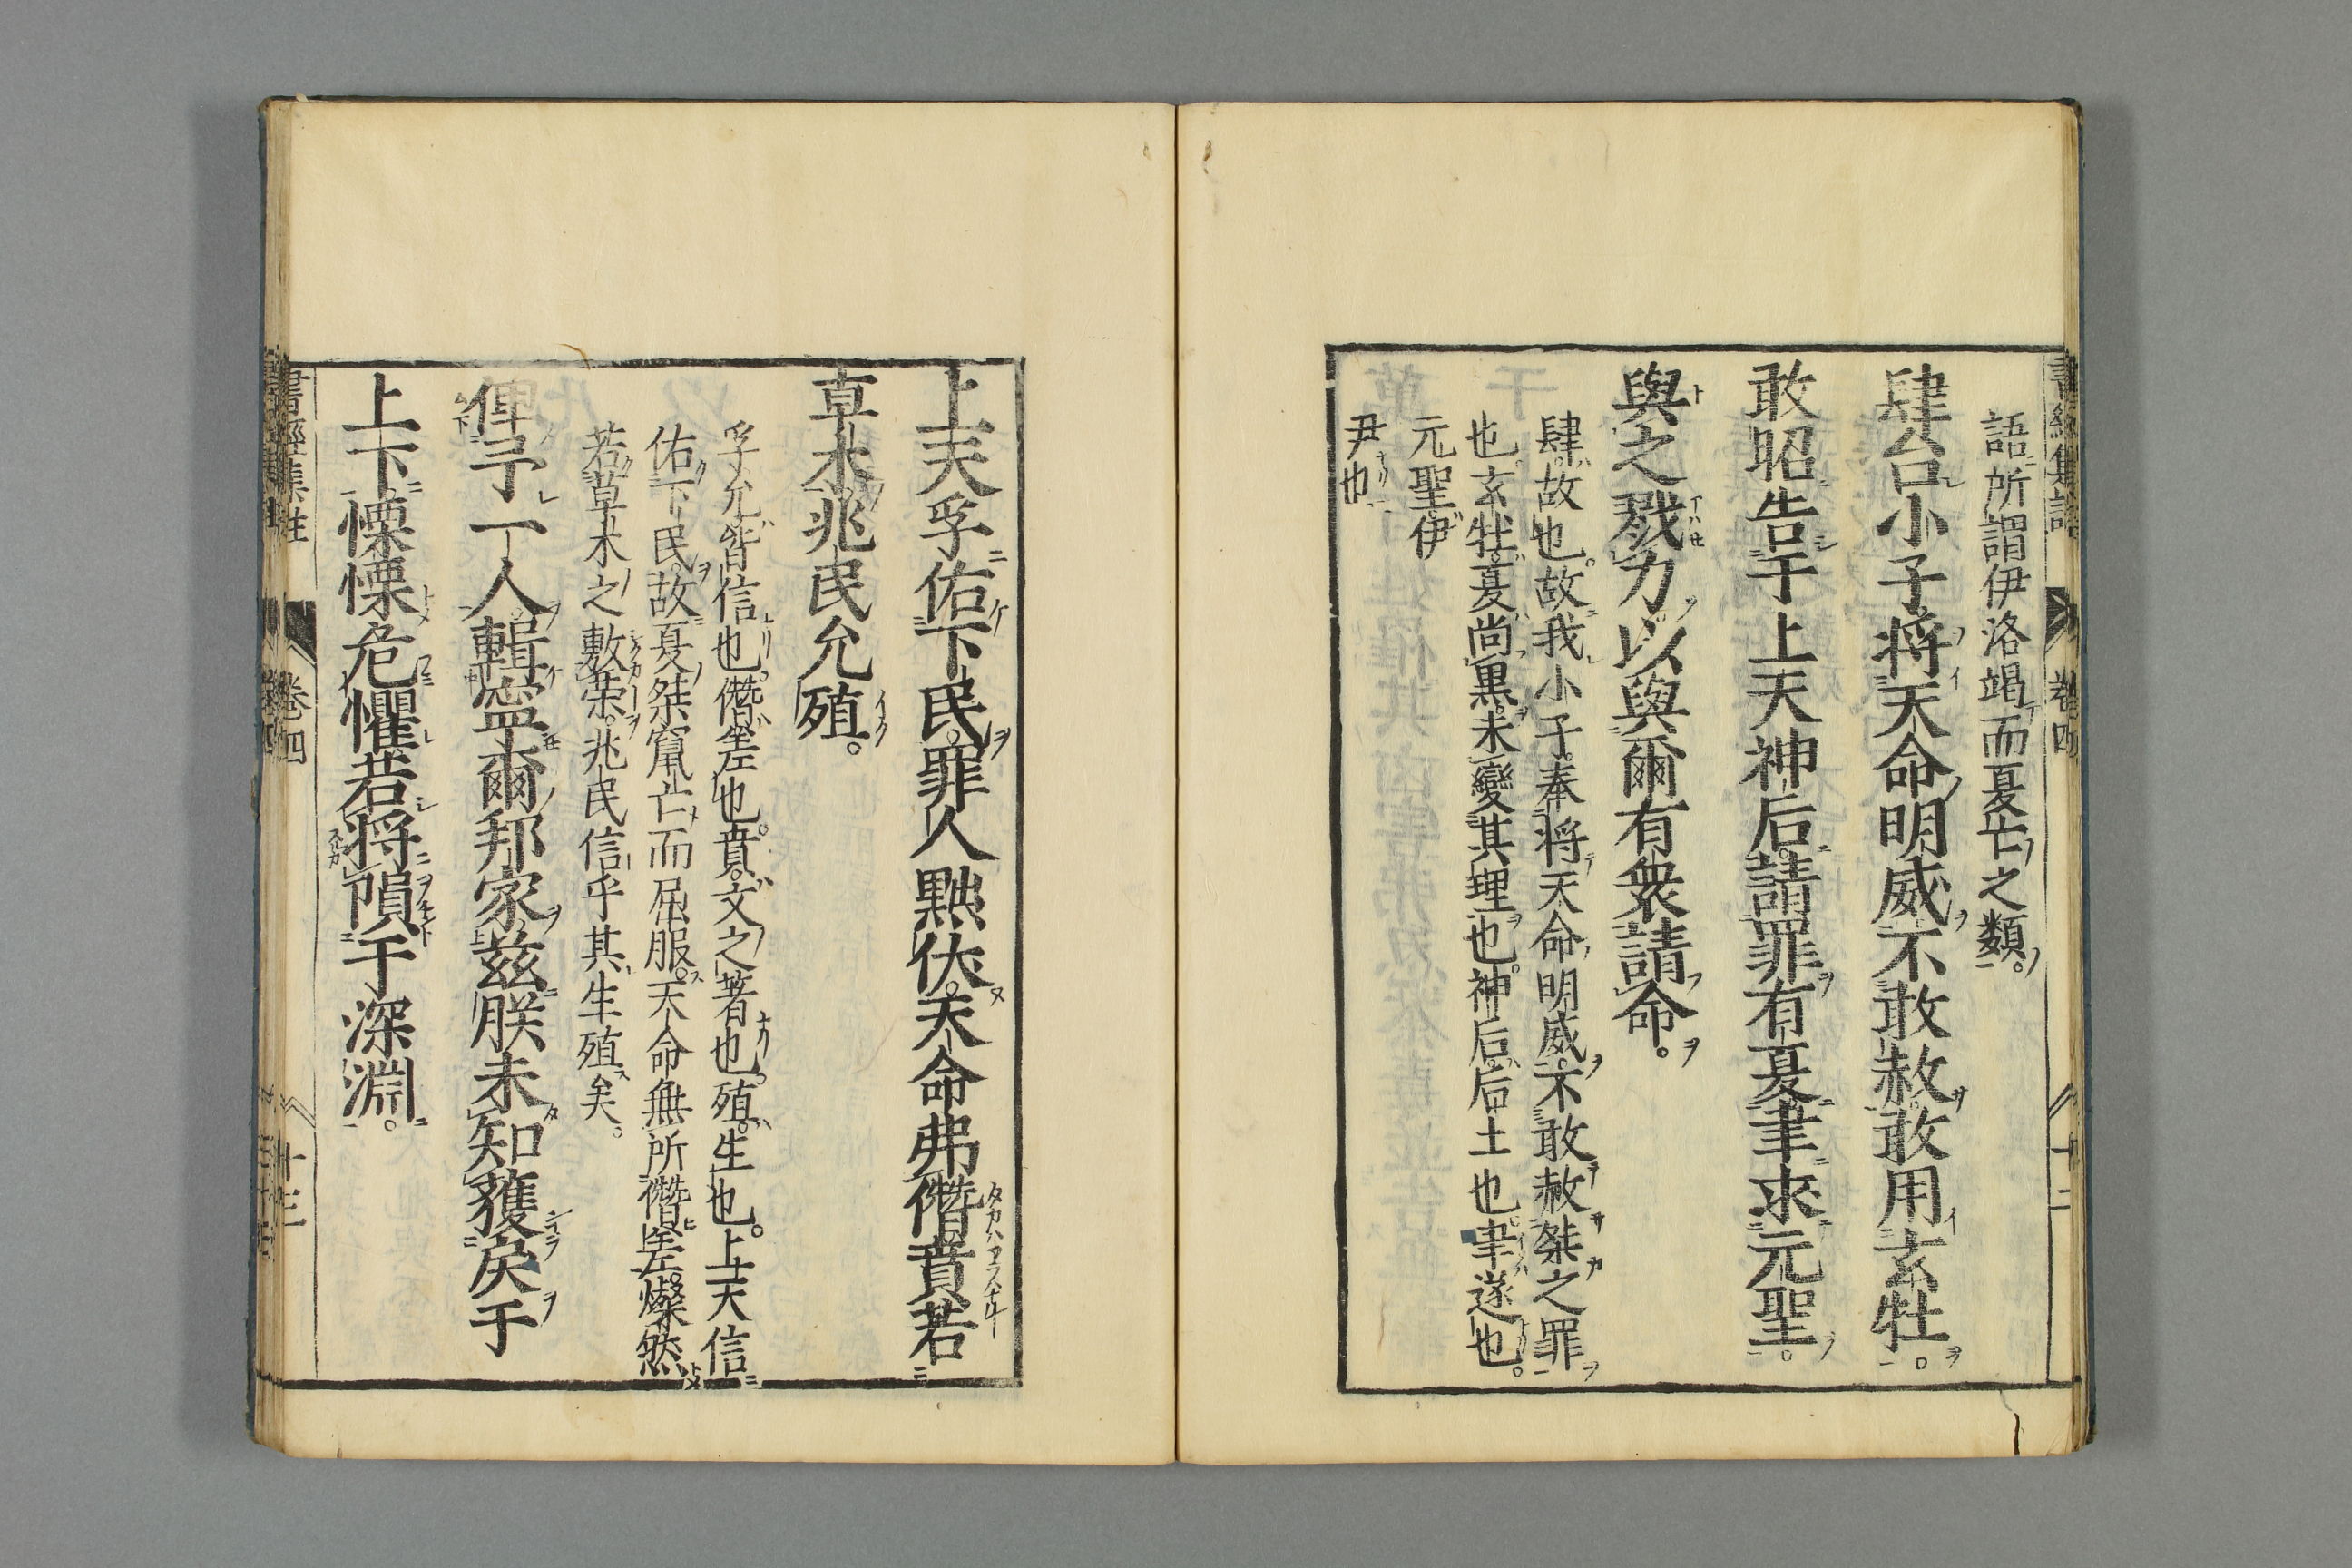 書經集註 卷四 十二
語所謂伊洛竭而夏亡之類。
肆台小子將天命明威不敢赦敢用玄牡。
敢昭告于上天神后請罪有夏聿求元聖。
與之戮力以與爾有衆請命。
肆故也。故我小子奉將天命明威不敢赦桀之罪
也玄牡夏尚黒未變其理也。神后后土也聿遂也。
元聖伊
尹也
上天孚佑下民罪人黜伏天命弗僭賁若
草木兆民允殖。
孚允皆信也。僭差也。賁文之著也。殖生也。上天信
佑下民故夏桀竄亡而屈服。天命無所僭差燦然
若草木之敷榮。兆民信乎其生殖矣。
俾予一人輯寧爾邦家茲朕未知獲戾于
上下慄慄危懼若將隕于深淵。
書經集註 卷四 十三